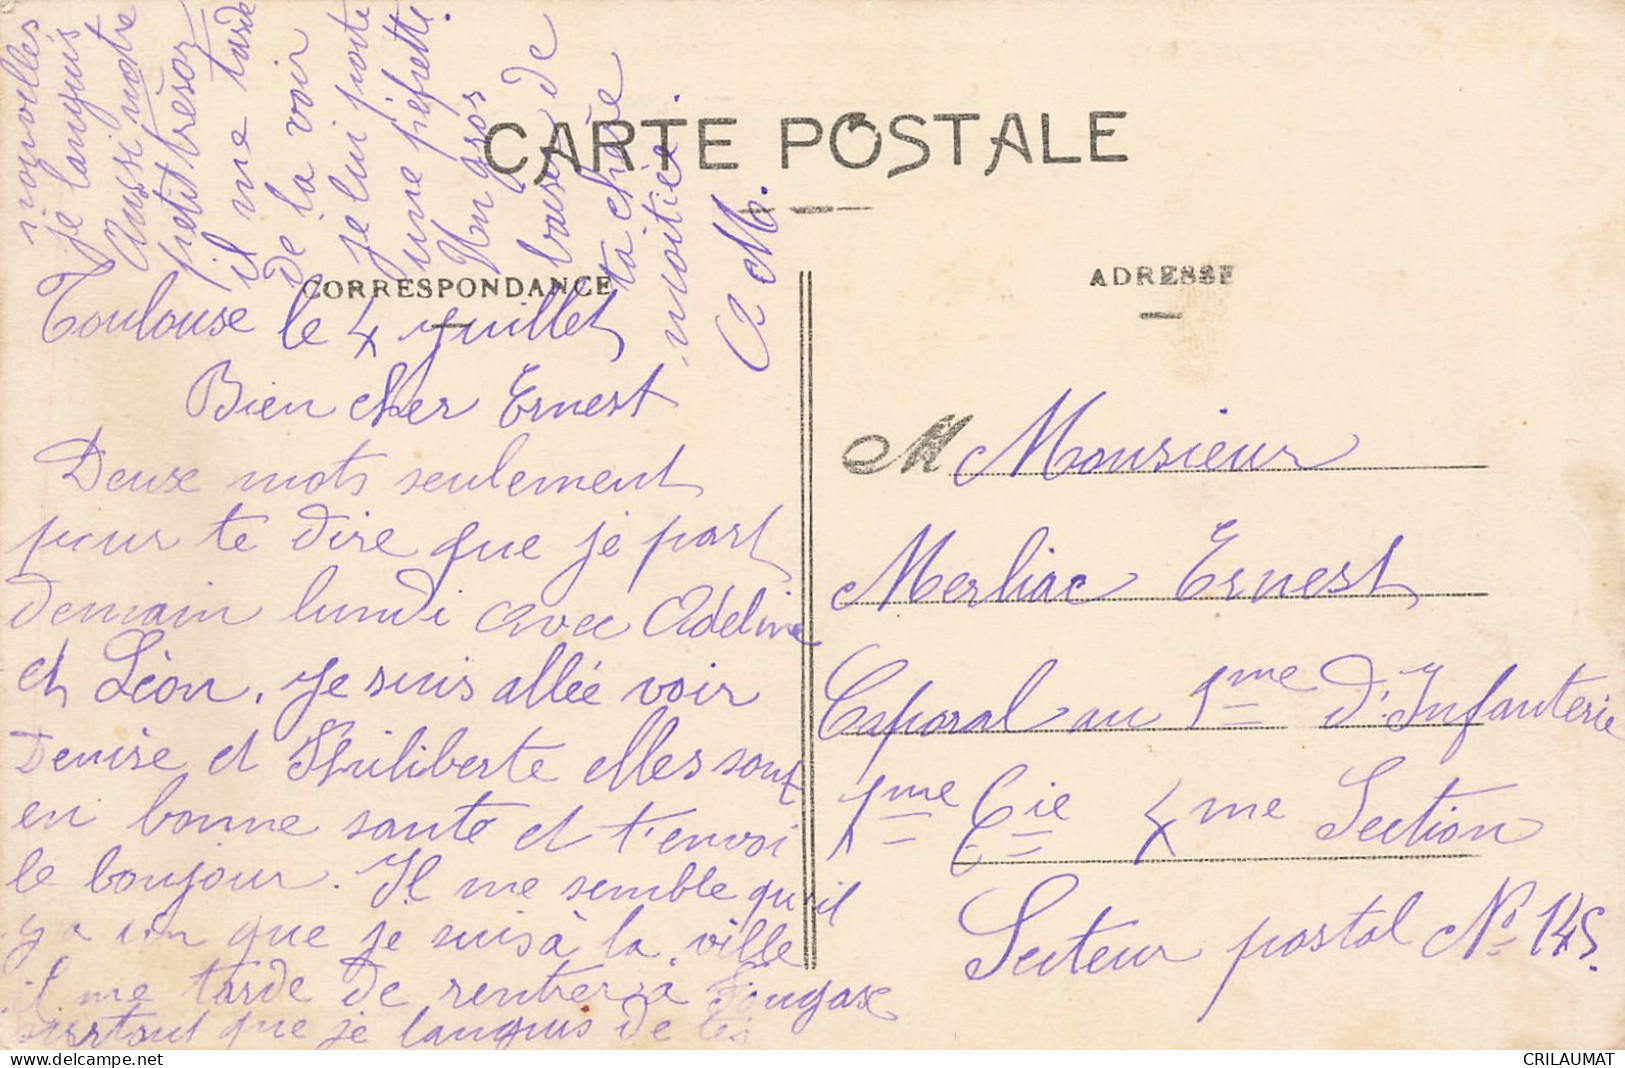 CARTE POSTALE
CORRESPONDANCE
Toulouse le 4 juillet
Bien cher Ernest
Deuse mots seulement
pour te dire que je part
demain lundi avec Adeline
et Léon. Je suis allée voir
Denise et Philiberte elles sont
en bonne santé et t'envoi
le bonjour. Il me semble qu'il
y a un que je suis à la ville
il me tarde de rentrer à
surtout que je languis de tes
nouvelles
je languis
Aussi notre
petit trésor
il me tarde
de la voir
je lui porte
une
Un gros
baiser de
ta chère
moitié.
A M.
ADRESSE
M Monsieur
Merliac Ernest
Caporal au 1me d'Infanterie
1me Cie 4me Section
Secteur postal No 145.
CRILAUMAT